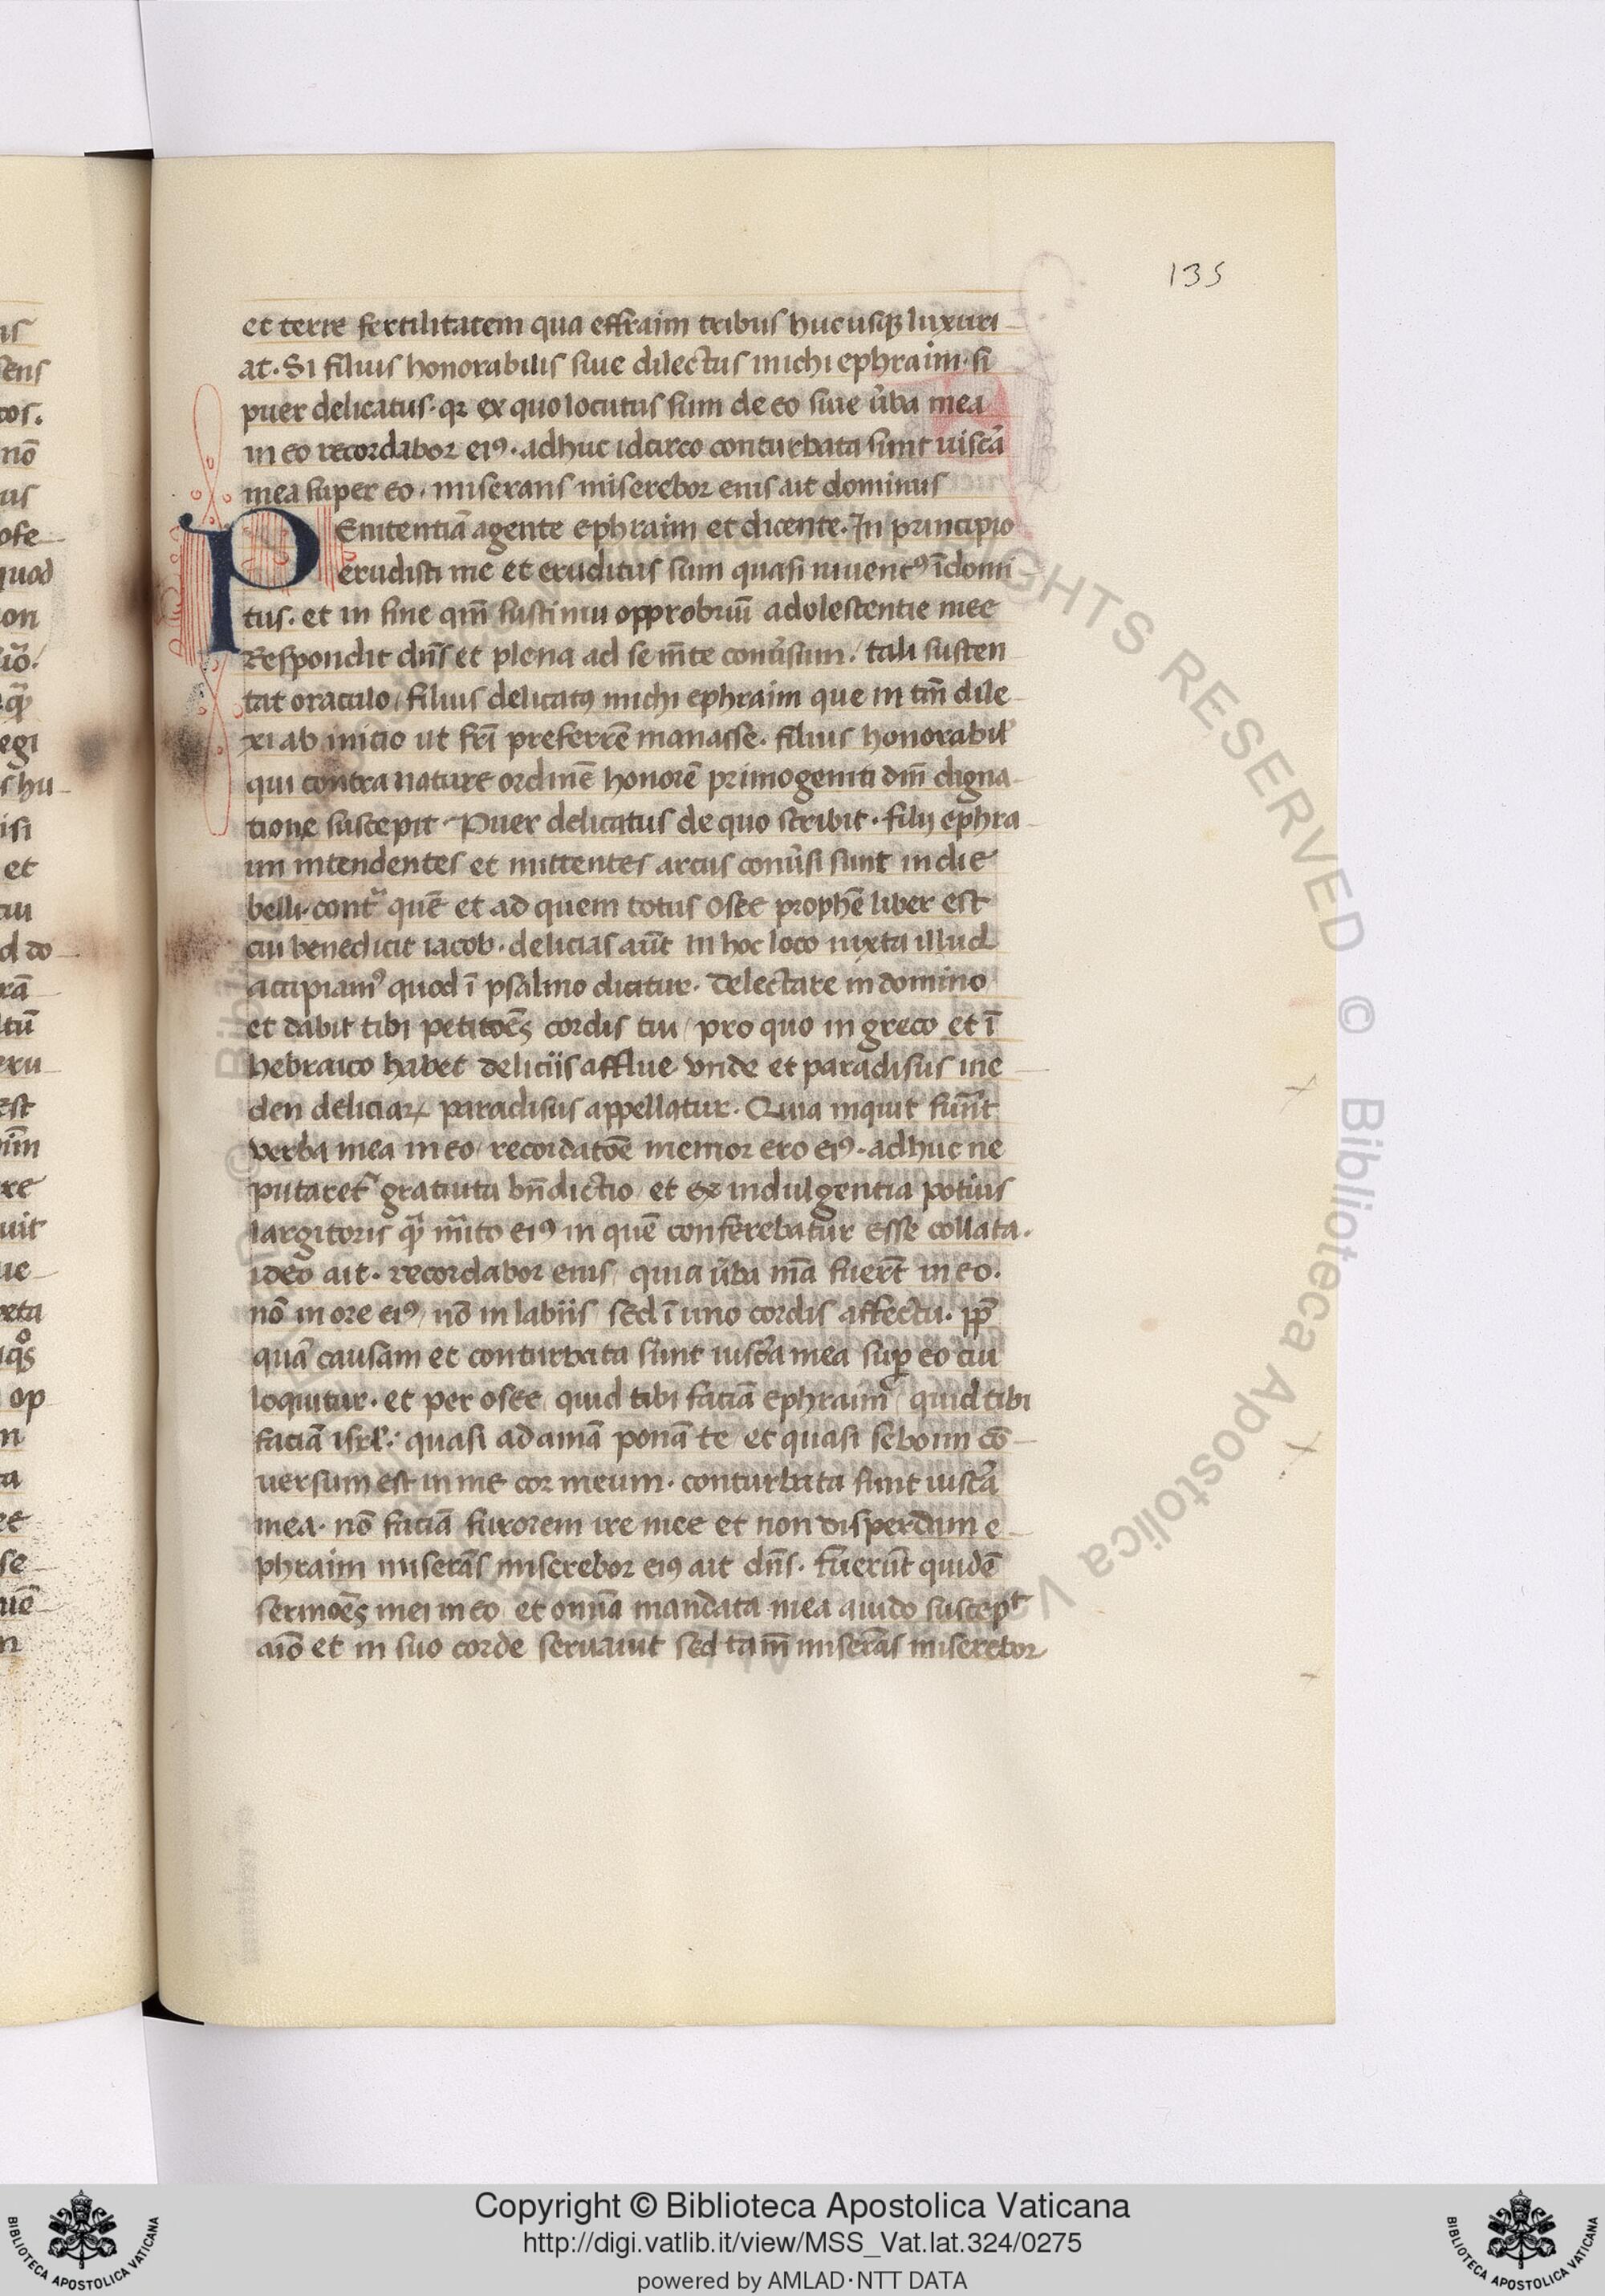 135
et terre fertilitatem qua effraim tribus hucusqꝫ luxuri
at. Si filius honorabilis siue dilectus michi ephraim. si
puer delicatus. qꝛ ex quo locutus sum de eo siue ũba mea
in eo recordabor eiꝰ. adhuc idcirco conturbata sunt uiscâ
mea super eo. miserans miserebor eius ait dominus
PEnitentiã agente Ephraim et dicente. In principio
erudisti me et eruditus sum quasi iuuencꝰ ĩdomi
tus. et in fine qm̃ sustinui opprobriũ adolescentie mee
Respondit dñs et plena ad se m̃te conũsum / tali susten
tat oraculo / filius delicatꝰ michi ephraim que in tm̃ dile
xi ab initio ut fr̃i preferrẽ manasse. filius honorabil'
qui contra nature ordinẽ honorẽ primogeniti dm̃ digna
tione suscepit. Puer delicatus de quo scribit. filij ephra
im intendentes et mittentes arcus conũsi sunt in die
belli. cont̃ quẽ et ad quem totus Osee prophẽ liber est
cui benedicit iacob. delicias aũt in hoc loco iuxta illud
accipiamꝰ quod ĩ psalmo dicitur. Delectare in domino
et dabit tibi petitoẽs cordis tui / pro quo in greco et ĩ
hebraico habet deliciis afflue vnde et paradisus in e
den deliciaꝝ paradisus appellatur. Quia inquit fuñt
verba mea in eo / recordatoẽ memor ero eiꝰ. adhuc ne
putaret᷑ gratiuta bñdictio / et ex indulgentia potius
largitoris q̃ m̃ito eiꝰ in quẽ conferebatur esse collata.
ideo ait. recordabor eius / quia ũba m̃a fuer̃t in eo.
nõ in ore eiꝰ / nõ in labiis / sed ĩ uno cordis affectu. pp̃
quã causam et conturbata sunt uiscâ mea suꝑ eo cui
loquitur. et per osee / quid tibi faciã Ephraim / quid tibi
faciã isrl̃. quasi adamã ponã te / et quasi seboim cõ
uersum est in me cor meum. conturbata sunt uiscâ
mea. nõ faciã furorem ire mee et non disperdam e
phraim miserãs miserebor eiꝰ ait dñs. fuerũt quidẽ
sermoẽs mei in eo / et omĩa mandata mea auido suscepᵗ
aĩo et in suo corde seruauit sed tam̃ miserãs miserebor
Copyright © Biblioteca Apostolica Vaticana
http://digi.vatlib.it/view/MSS_Vat.lat.324/0275
powered by AMLAD·NTT DATA